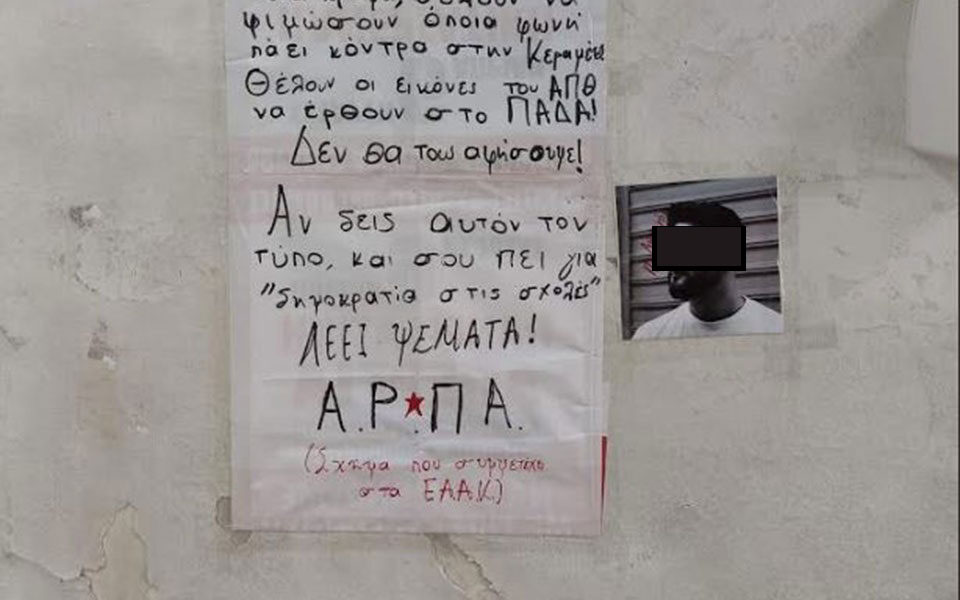 να
φιμώσουν όποια φωνή
πάει κόντρα στην Κεραμέως
Θέλουν οι εικόνες του ΑΠΘ
να έρθουν στο ΠΑΔΑ!
Δεν θα τους αφήσουμε!
Αν δεις αυτόν τον
τύπο, και σου πει για
"δημοκρατία στις σχολές"
ΛΕΕΙ ΨΕΜΑΤΑ!
Α.Ρ★Π Α.
(Σχήμα που συμμετέχει
στα ΕΑΑΚ)